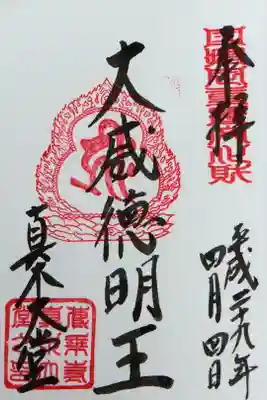 奉拝
平成二十九年
四月四日
大威徳明王
真木大堂